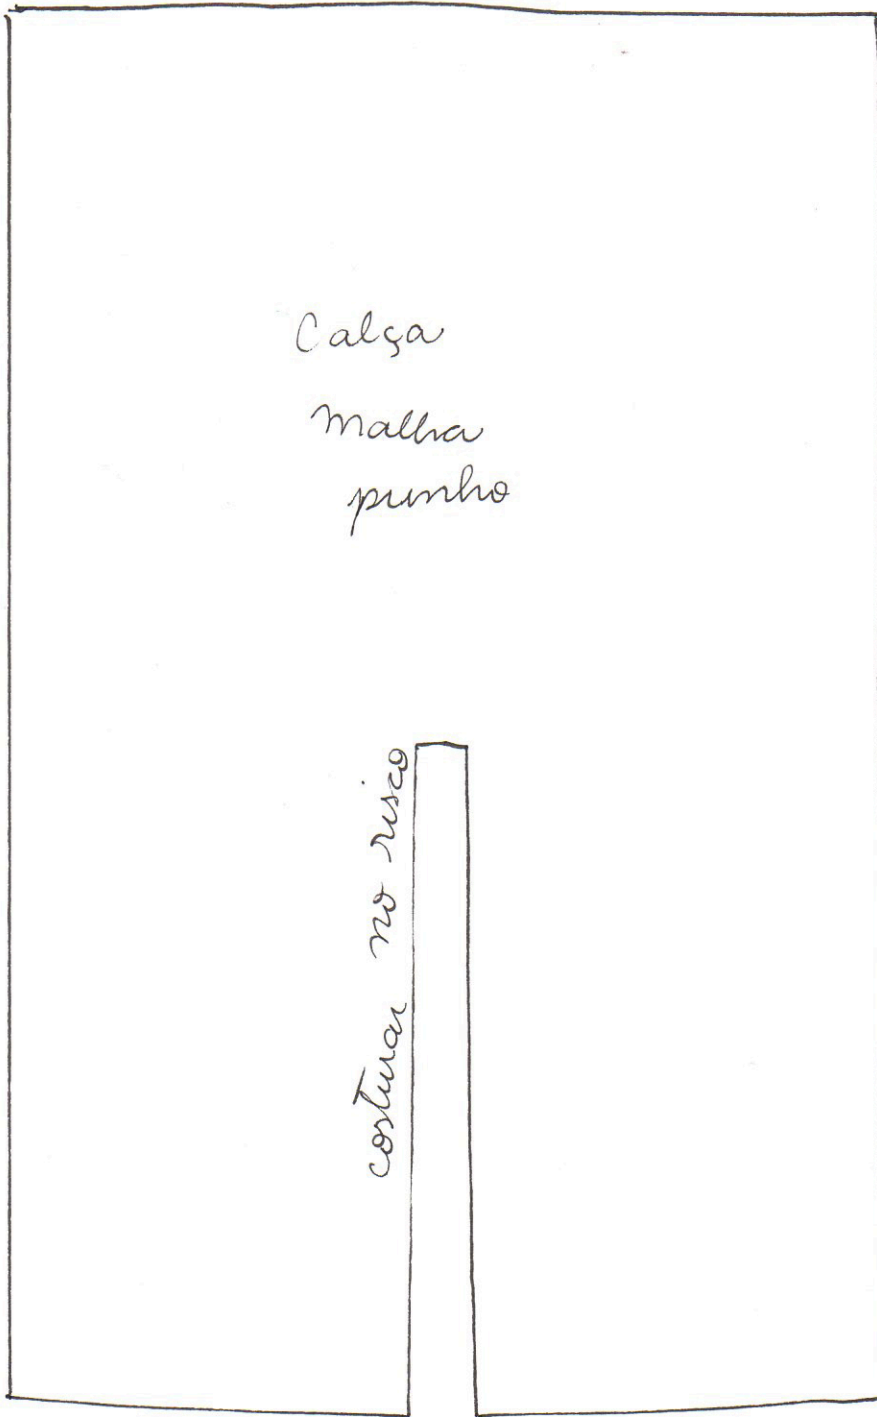 Calça
malha
punho
costurar no risco